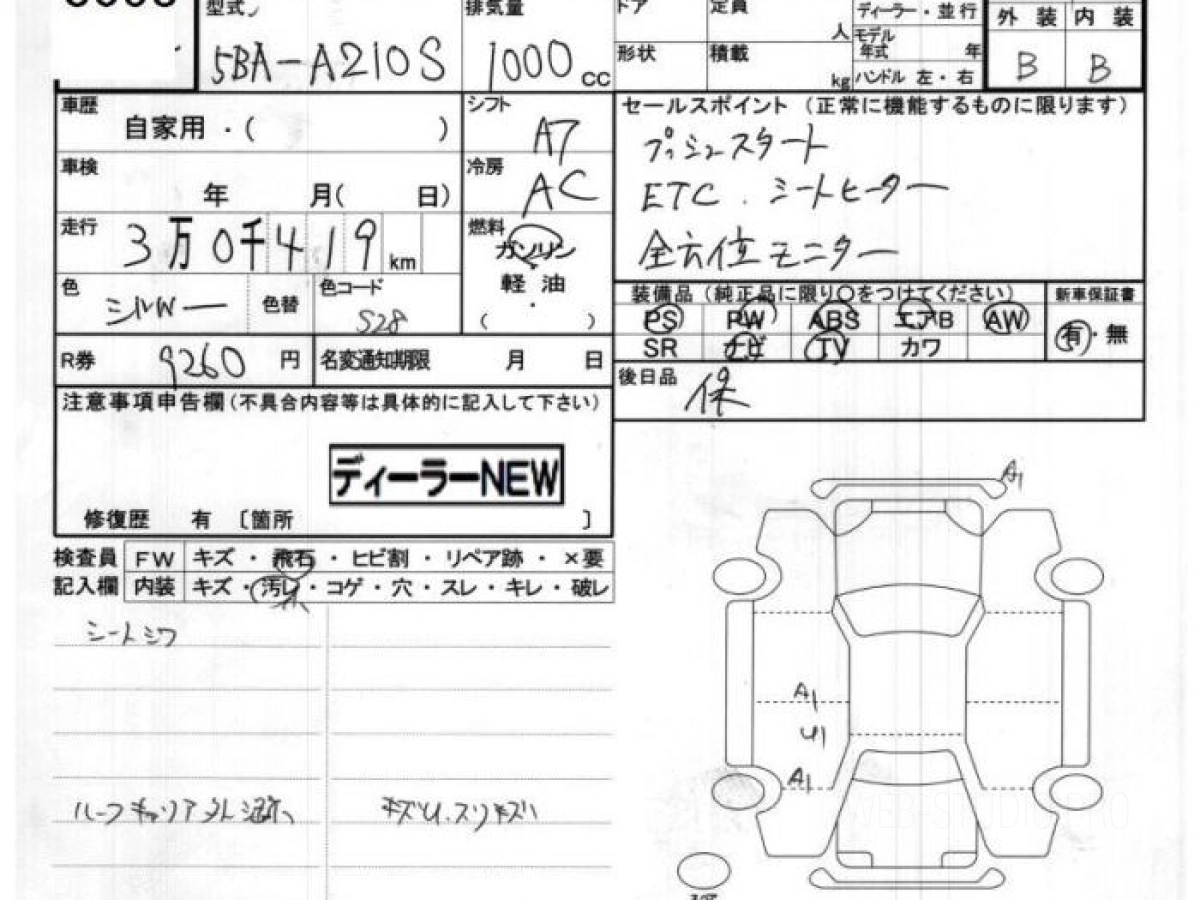 型式 排気量 ドア 定員 ディーラー・並行 外装 内装
5BA-A210S 1000cc 人 モデル年式 年 B B
形状 積載 kg ハンドル 左・右
車歴 シフト セールスポイント (正常に機能するものに限ります)
自家用・( ) A7 プッシュスタート
車検 冷房
年 月( 日) AC ETC. シートヒーター
走行 燃料
3万0千419km ガソリン 全方位モニター
色 色コード 軽油 装備品 (純正品に限り○をつけてください) 新車保証書
シルバー 色替 S28 ・ PS PW ABS エアB AW 有・無
( ) SR ナビ TV カワ
R券 9260円 名変通知期限 月 日 後日品 保
注意事項申告欄(不具合内容等は具体的に記入して下さい)
ディーラーNEW
修復歴 有 〔箇所 〕
A1
検査員 FW キズ・飛石・ヒビ割・リペア跡・×要
記入欄 内装 キズ・汚レ・コゲ・穴・スレ・キレ・破レ
シートシワ
A1
U1
A1
ルーフキャリア外し キズU.スリキズ
WEB-STUDIO.PRO